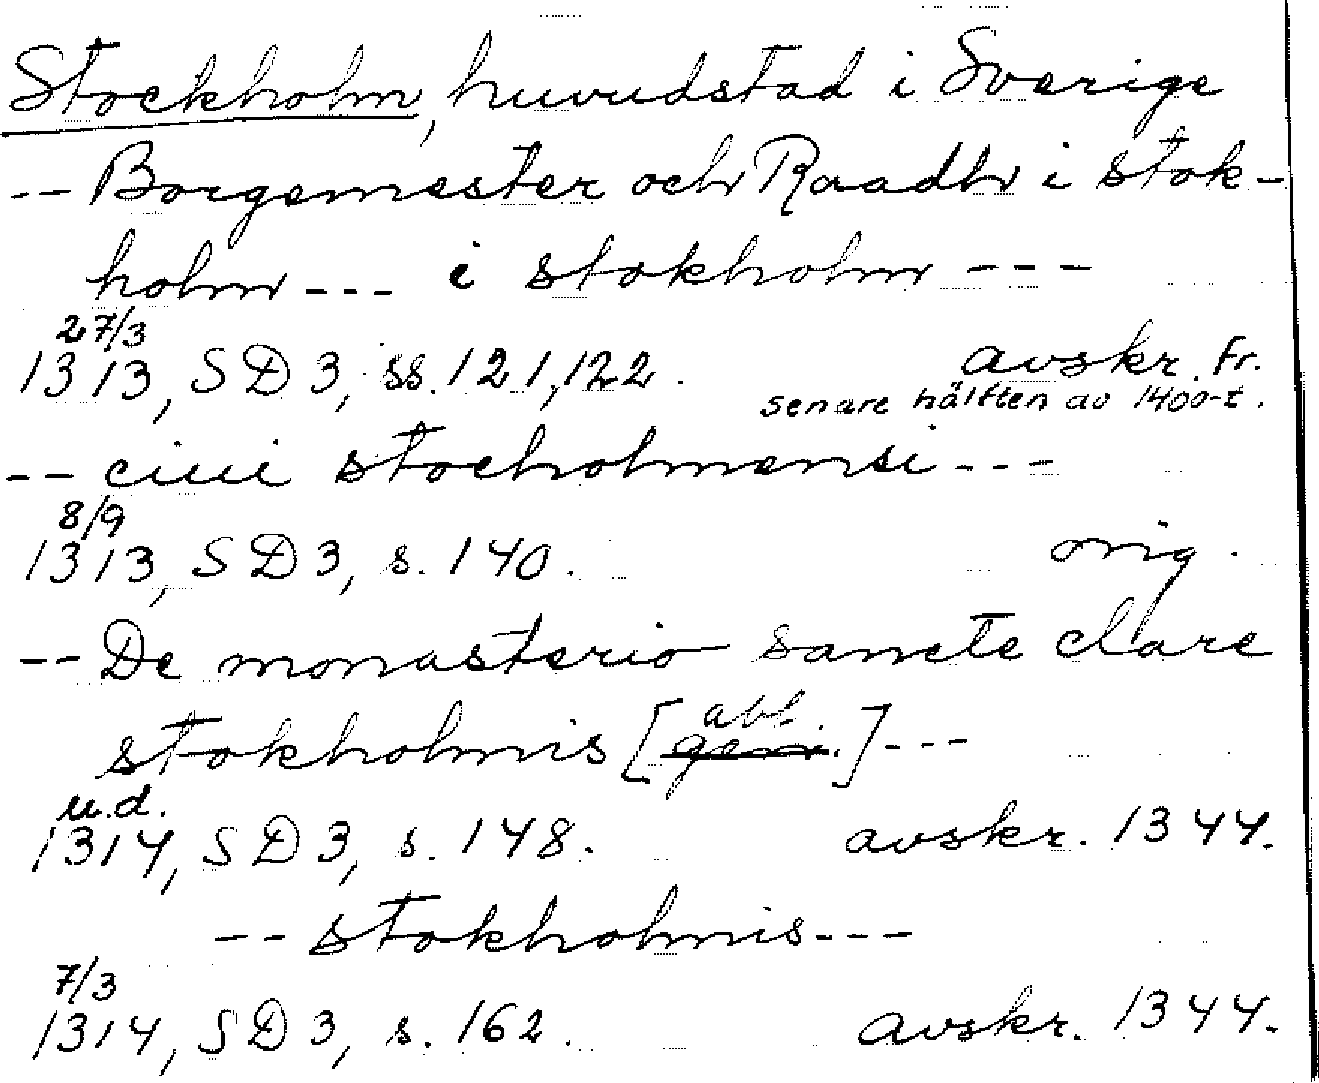 Stockholm, huvudstad i Sverige
-- Borgemester och Raadh i stok-
holm --- i stokholm ---
27/3
1313, SD 3, ss. 121, 122. avskr. fr.
senare hälften av 1400-t.
-- ciui stocholmensi ---
8/9
1313, SD 3, s. 140. orig.
-- De monasterio sancte clare
abl.
stokholmis [gen.] ---
u.d.
1314, SD 3, s. 148. avskr. 1344.
-- stokholmis ---
7/3
1314, SD 3, s. 162. avskr. 1344.